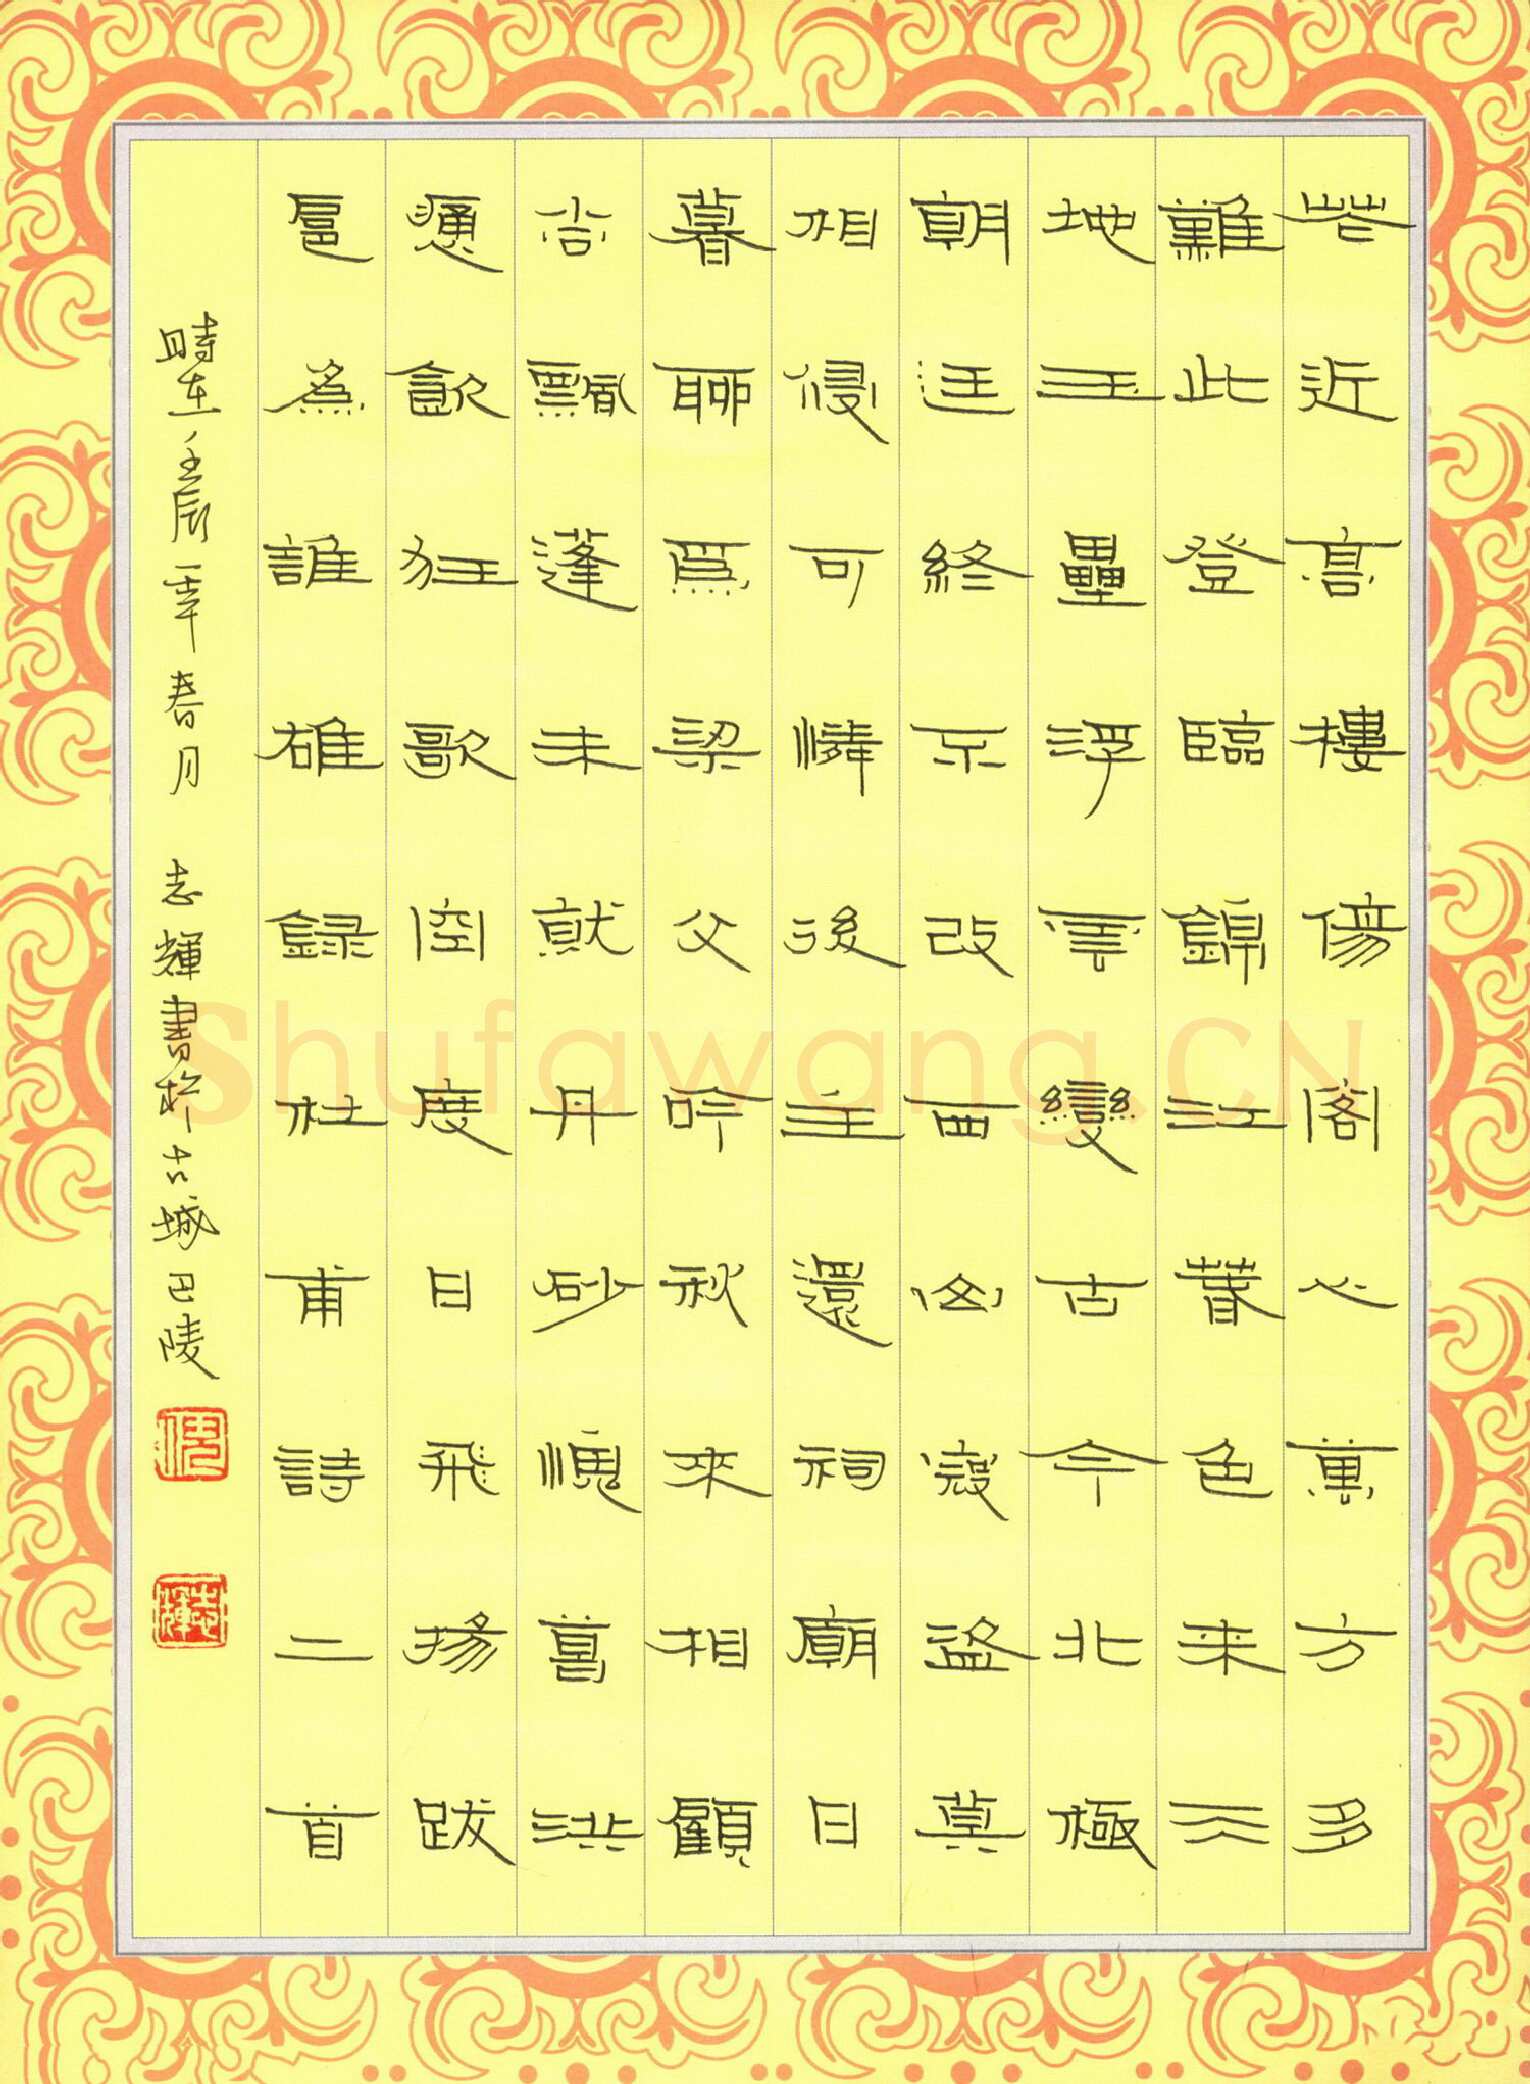 花近高樓傷閣心萬方多
難此登臨錦江春色来天
地玉壘浮雲變古今北極
朝廷終不改西山寇盗莫
相侵可憐後主還祠廟日
暮聊為梁父吟秋來相顧
尚飄蓬未就丹砂愧葛洪
痛飲狂歌空度日飛揚跋
扈為誰雄録杜甫二詩首
時在壬辰年春月 志輝書於古城巴陵
志輝
Shufawang.CN